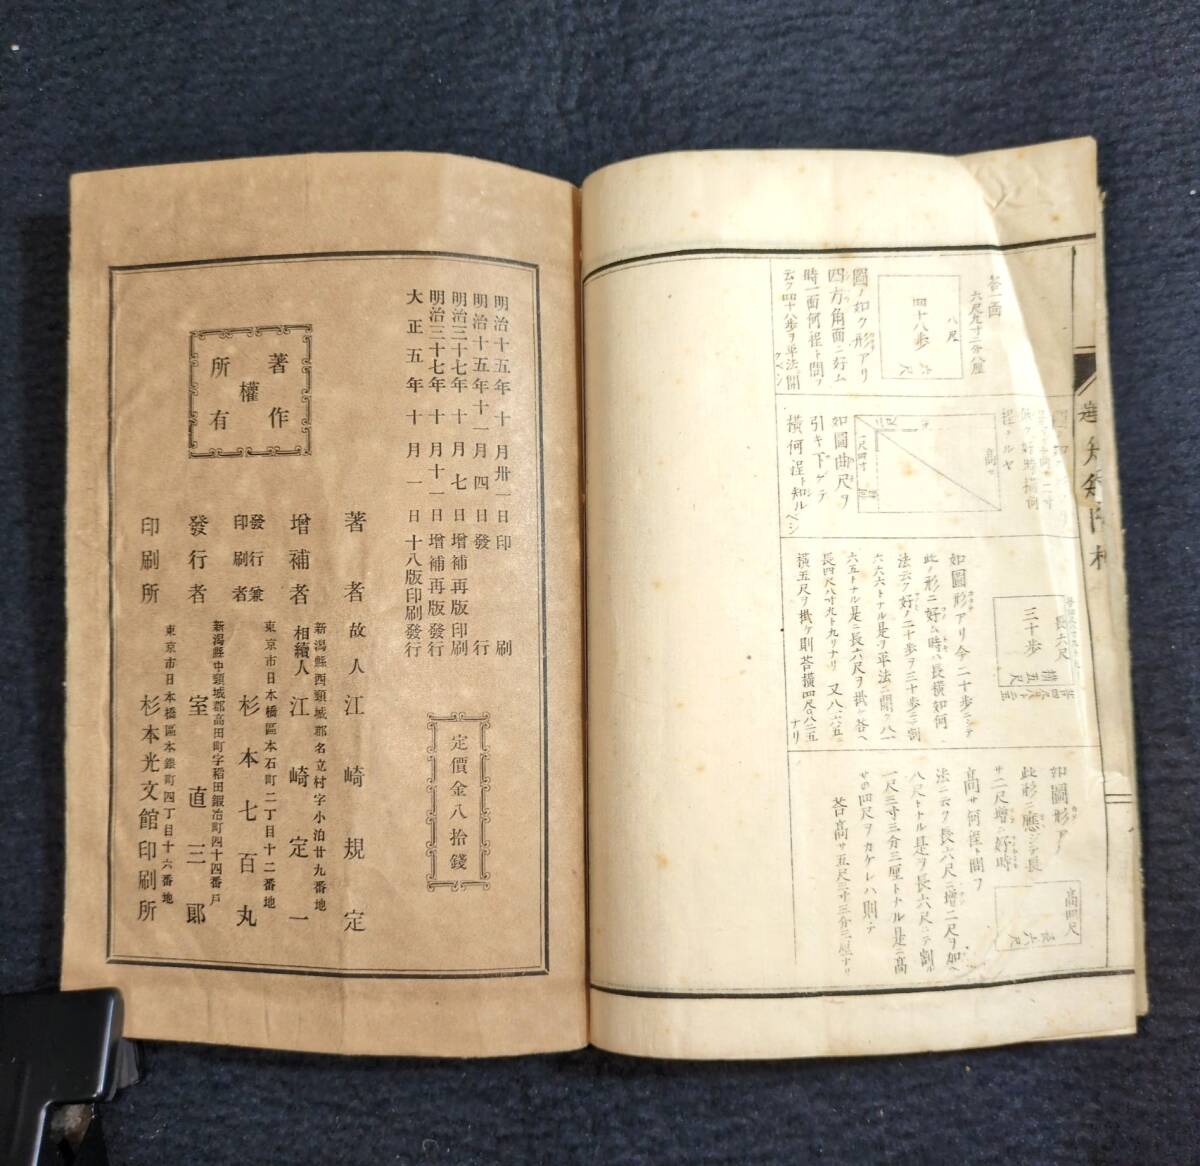 答一面
六尺九寸二分八厘
八尺
四十八歩
六尺
圖ノ如ク形アリ
四方角面ニ好ム
時一面何程ト問フ
云ク四十八歩ヲ平法ニ開
クベシ
高サ
一尺四寸
如圖曲尺ヲ
引キ下ゲテ
横何程ト知ルベシ
長六尺
三十歩
横五尺
如圖形アリ今二十歩ニシテ
此ノ形ニ好ム時ハ長横如何
法云ク好ノ二十歩ヲ三十歩ニテ割
六六六トナル是ヲ平法ニ開ク八一
六五トナル是ニ長六尺ヲ掛ケ答ヘ
長四尺八寸九ト九リナリ 又八一六五ニ
横五尺ヲ掛ケ則答横四尺〇八二五
ナリ
如圖形アリ
此形ニ應ジテ長
サ二尺増ニ好時
高サ何程ト問フ
法ニ云ク長六尺ニ増二尺ヲ加ヘ
八尺トナル是ヲ長六尺ニテ割ル
一尺三寸三分三厘トナル是ニ高
サ四尺ヲカケレハ則チ
答高サ五尺三寸三分三厘ナリ
高四尺
長六尺
明治十五年十月卅一日印刷
明治十五年十一月四日發行
明治三十七年十月七日增補再版印刷
明治三十七年十月十一日增補再版發行
大正五年十月一日十八版印刷發行
定價金八拾錢
著作
權
所有
著者 故人 江崎規定
新潟縣西頸城郡名立村字小泊廿九番地
增補者 相續人 江崎定一
東京市日本橋區本石町二丁目十二番地
發行兼印刷者 杉本七百丸
新潟縣中頸城郡高田町字稻田鍛冶町四十四番戸
發行者 室直三郎
東京市日本橋區本銀町四丁目十六番地
印刷所 杉本光文館印刷所